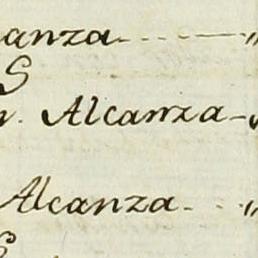 anza - - - - "
S
n. Alcanza - "
Alcanza - - - "